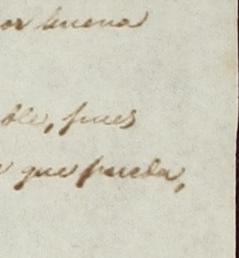 or buena
ble, pues
que pueda,